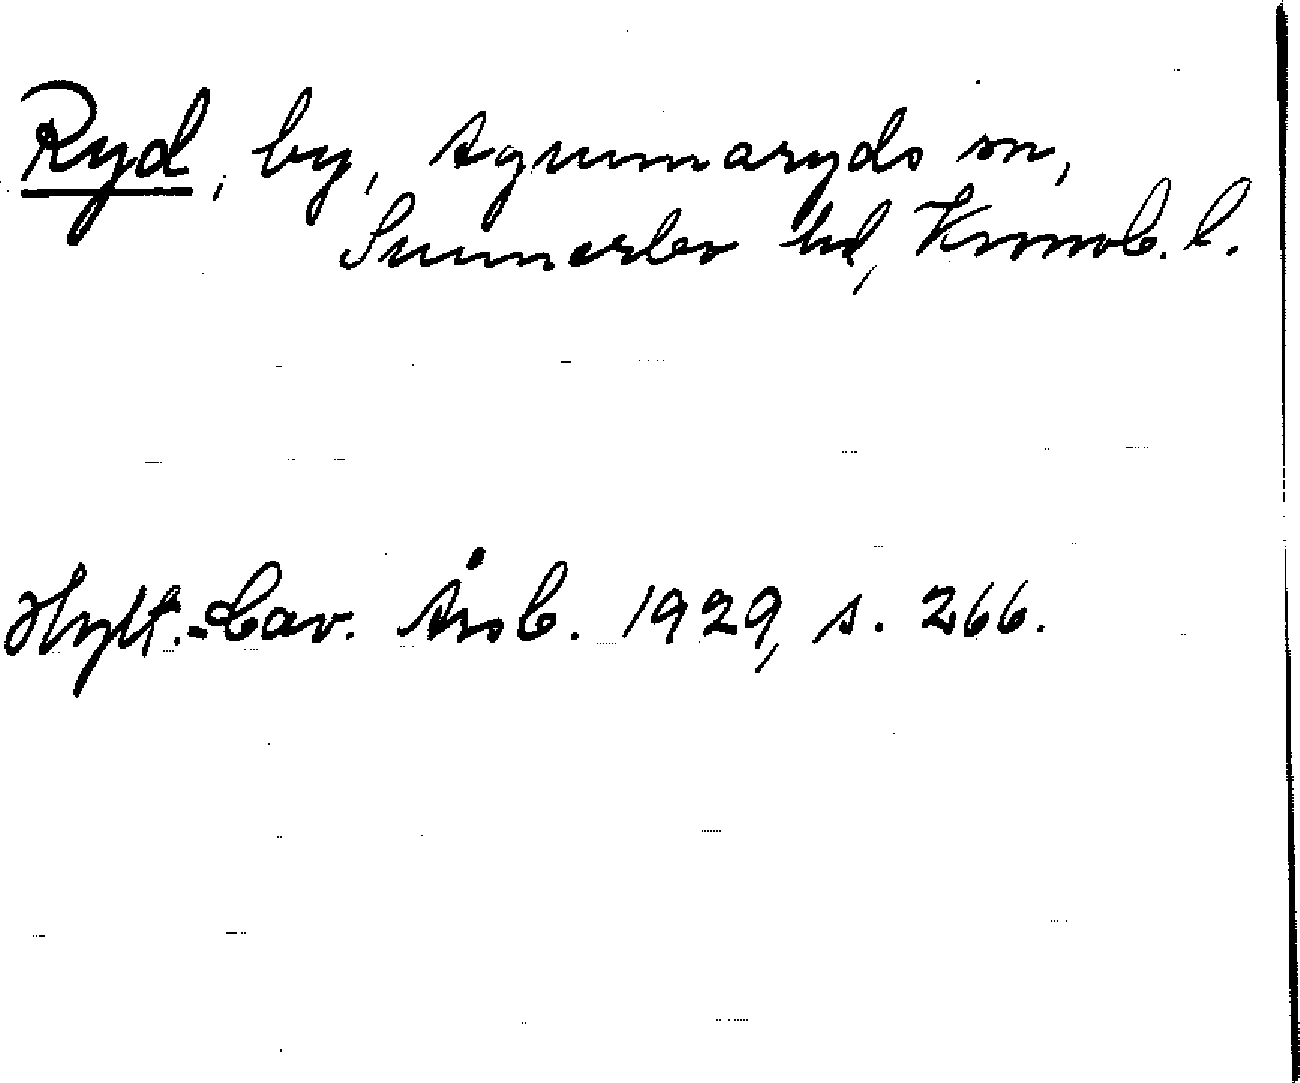 Ryd, by, Agunnaryds sn,
Sunnerbo hd, Kronob. l.
Hylt.-Cav. Årsb. 1929, s. 266.